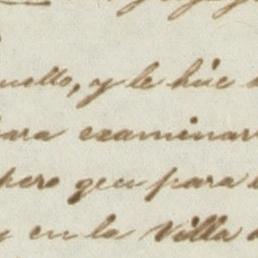 uello, y le hice
para examinar
pero que para
y en la Villa